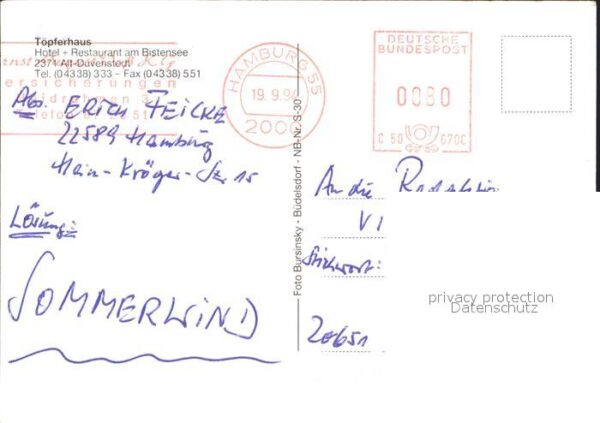 Töpferhaus
Hotel + Restaurant am Bistensee
2371 Alt-Duvenstedt
Tel. (04338) 333 – Fax (04338) 551
HAMBURG 55
19. 9.9
2000
DEUTSCHE
BUNDESPOST
0080
C 50 670C
Abs. ERICH FEICKE
22589 Hamburg
Hein-Kröger-Str. 15
Lösung:
SOMMERWIND
Foto Bursinsky - Büdelsdorf - NB-Nr. S-30
An die Redaktion
VI
Stichwort:
20651
privacy protection
Datenschutz